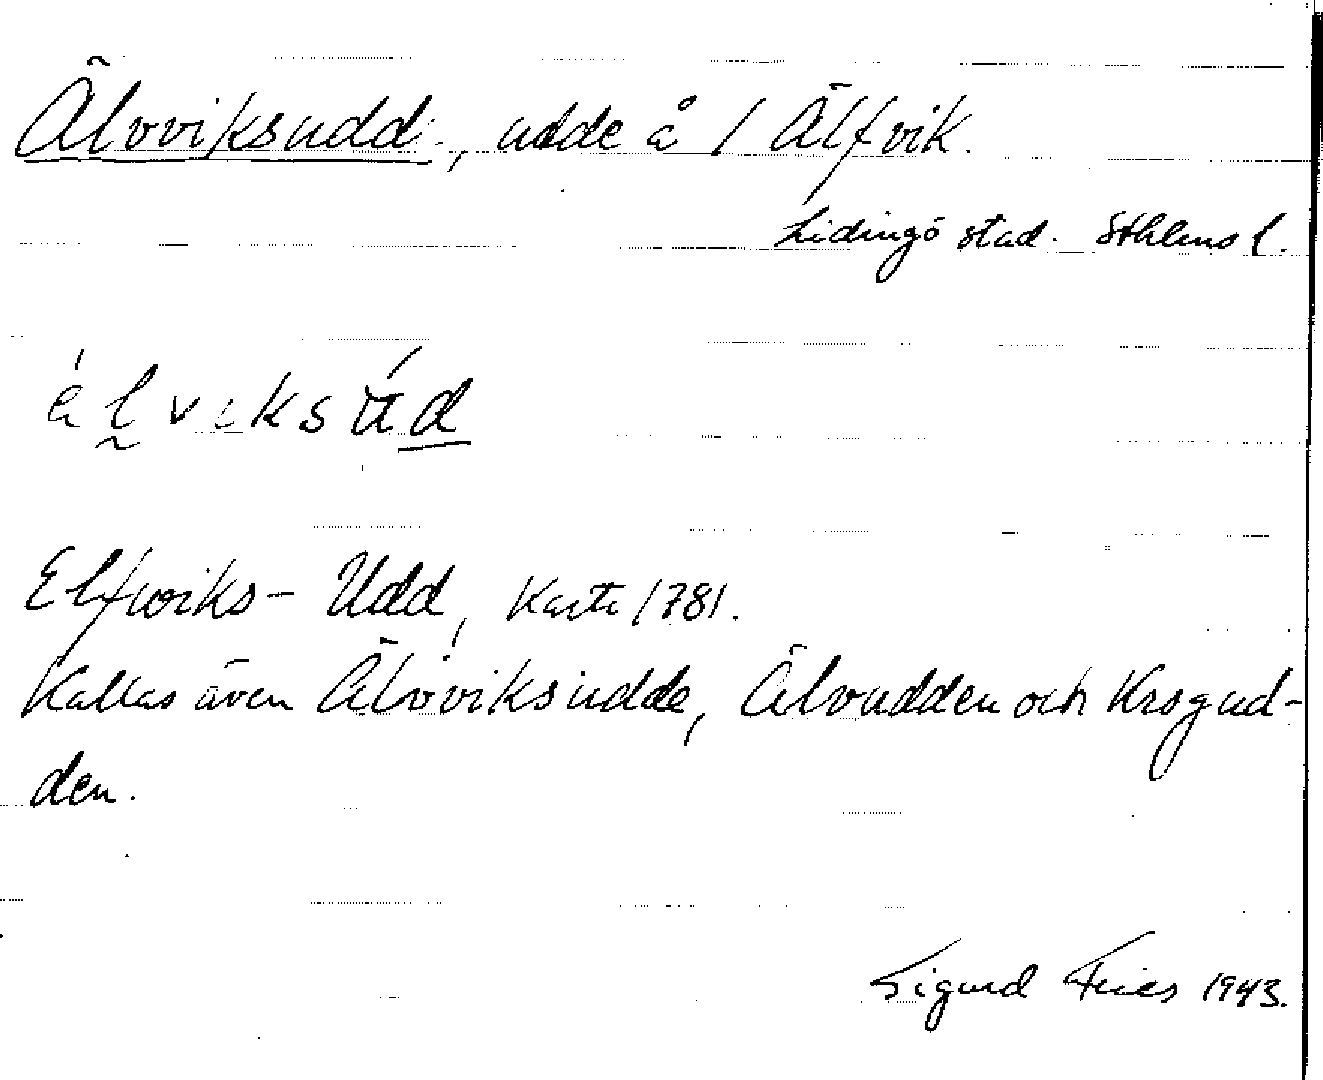 Älvviksudd, udde å 1 Älfvik.
Lidingö stad. Sthlms l.
Elfwiks-Udd, Karta 1781.
Kallas även Älvviksudde, Älvudden och Krogud-
den.
Sigurd Fries 1943.